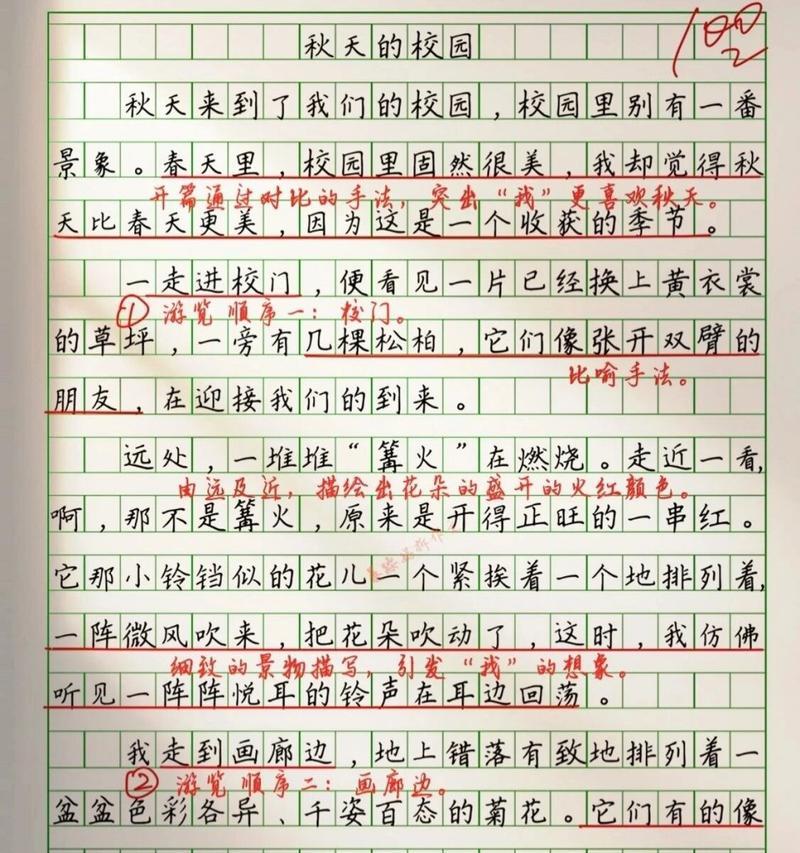 秋天的校园
100
秋天来到了我们的校园，校园里别有一番
景象。春天里，校园里固然很美，我却觉得秋
开篇通过对比的手法，突出“我”更喜欢秋天。
天比春天更美，因为这是一个收获的季节。
一走进校门，便看见一片已经换上黄衣裳
①游览顺序一：校门。
的草坪，一旁有几棵松柏，它们像张开双臂的
比喻手法。
朋友，在迎接我们的到来。
远处，一堆堆“篝火”在燃烧。走近一看，
由远及近，描绘出花朵的盛开的火红颜色。
啊，那不是篝火，原来是开得正旺的一串红。
它那小铃铛似的花儿一个紧挨着一个地排列着，
一阵微风吹来，把花朵吹动了，这时，我仿佛
细致的景物描写，引发“我”的想象。
听见一阵阵悦耳的铃声在耳边回荡。
我走到画廊边，地上错落有致地排列着一
②游览顺序二：画廊边。
盆盆色彩各异、千姿百态的菊花。它们有的像